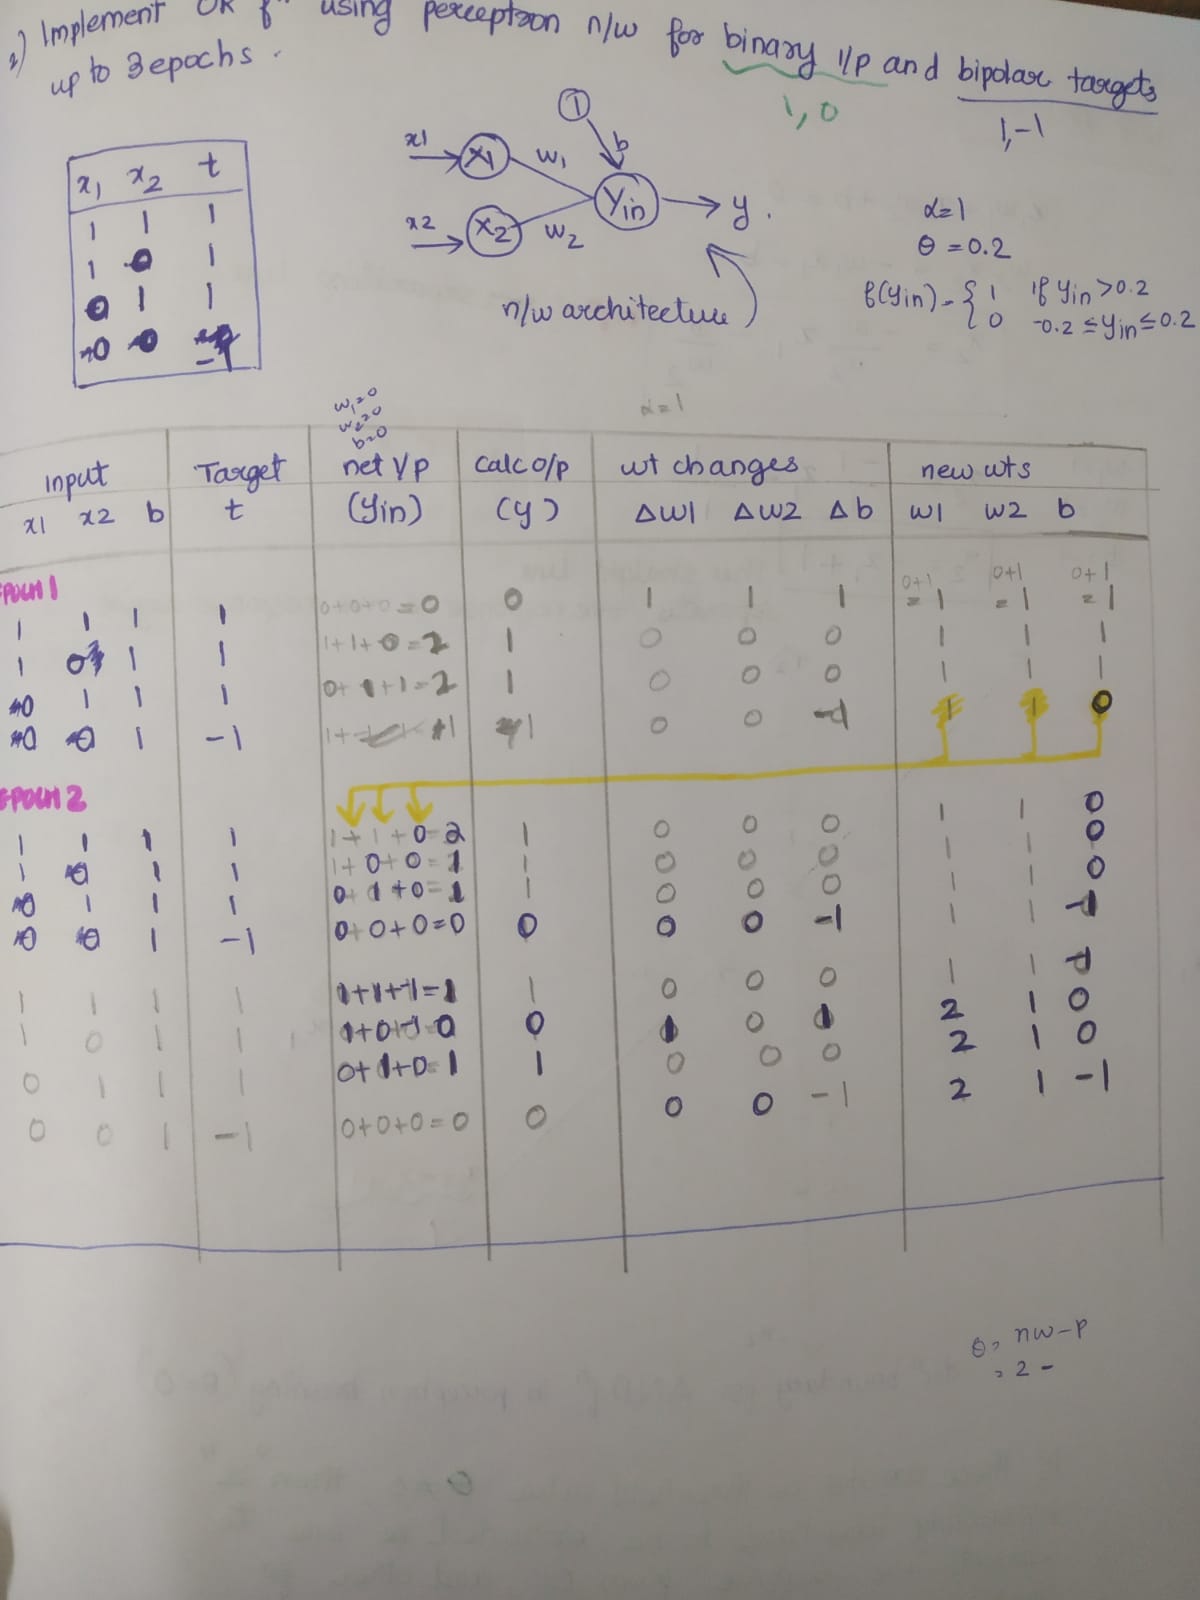 2) Implement OR fn using perceptron n/w for binary i/p and bipolar targets
up to 3 epochs.
1, 0
1, -1
x1 x2 t
1 1 1
1 0 1
0 1 1
0 0 -1
1
x1 X1 w1 b
Yin y.
x2 X2 w2
n/w architecture
α=1
θ = 0.2
f(yin) = { 1 if yin > 0.2
0 -0.2 ≤ yin ≤ 0.2
w1=0
w2=0
b=0
α=1
input Target net i/p calc o/p wt changes new wts
x1 x2 b t (Yin) (y) Δw1 Δw2 Δb w1 w2 b
EPOCH 1
0+1 0+1 0+1
1 1 1 1 0+0+0=0 0 1 1 1 =1 =1 =1
1 0 1 1 1+1+0=2 1 0 0 0 1 1 1
0 1 1 1 0+1+1=2 1 0 0 0 1 1 1
0 0 1 -1 1 0 0 -1 1 1 0
EPOCH 2
1 1 1 1 1+1+0=2 1 0 0 0 1 1 0
1 0 1 1 1+0+0=1 1 0 0 0 1 1 0
0 1 1 1 0+1+0=1 1 0 0 0 1 1 0
0 0 1 -1 0+0+0=0 0 0 0 -1 1 1 -1
1 1 1 1 1+1+-1=1 1 0 0 0 1 1 -1
1 0 1 1 1+0+-1=0 0 1 0 1 2 1 0
0 1 1 1 0+1+0=1 1 0 0 0 2 1 0
0 0 1 -1 0+0+0=0 0 0 0 -1 2 1 -1
θ = nw-p
= 2 -